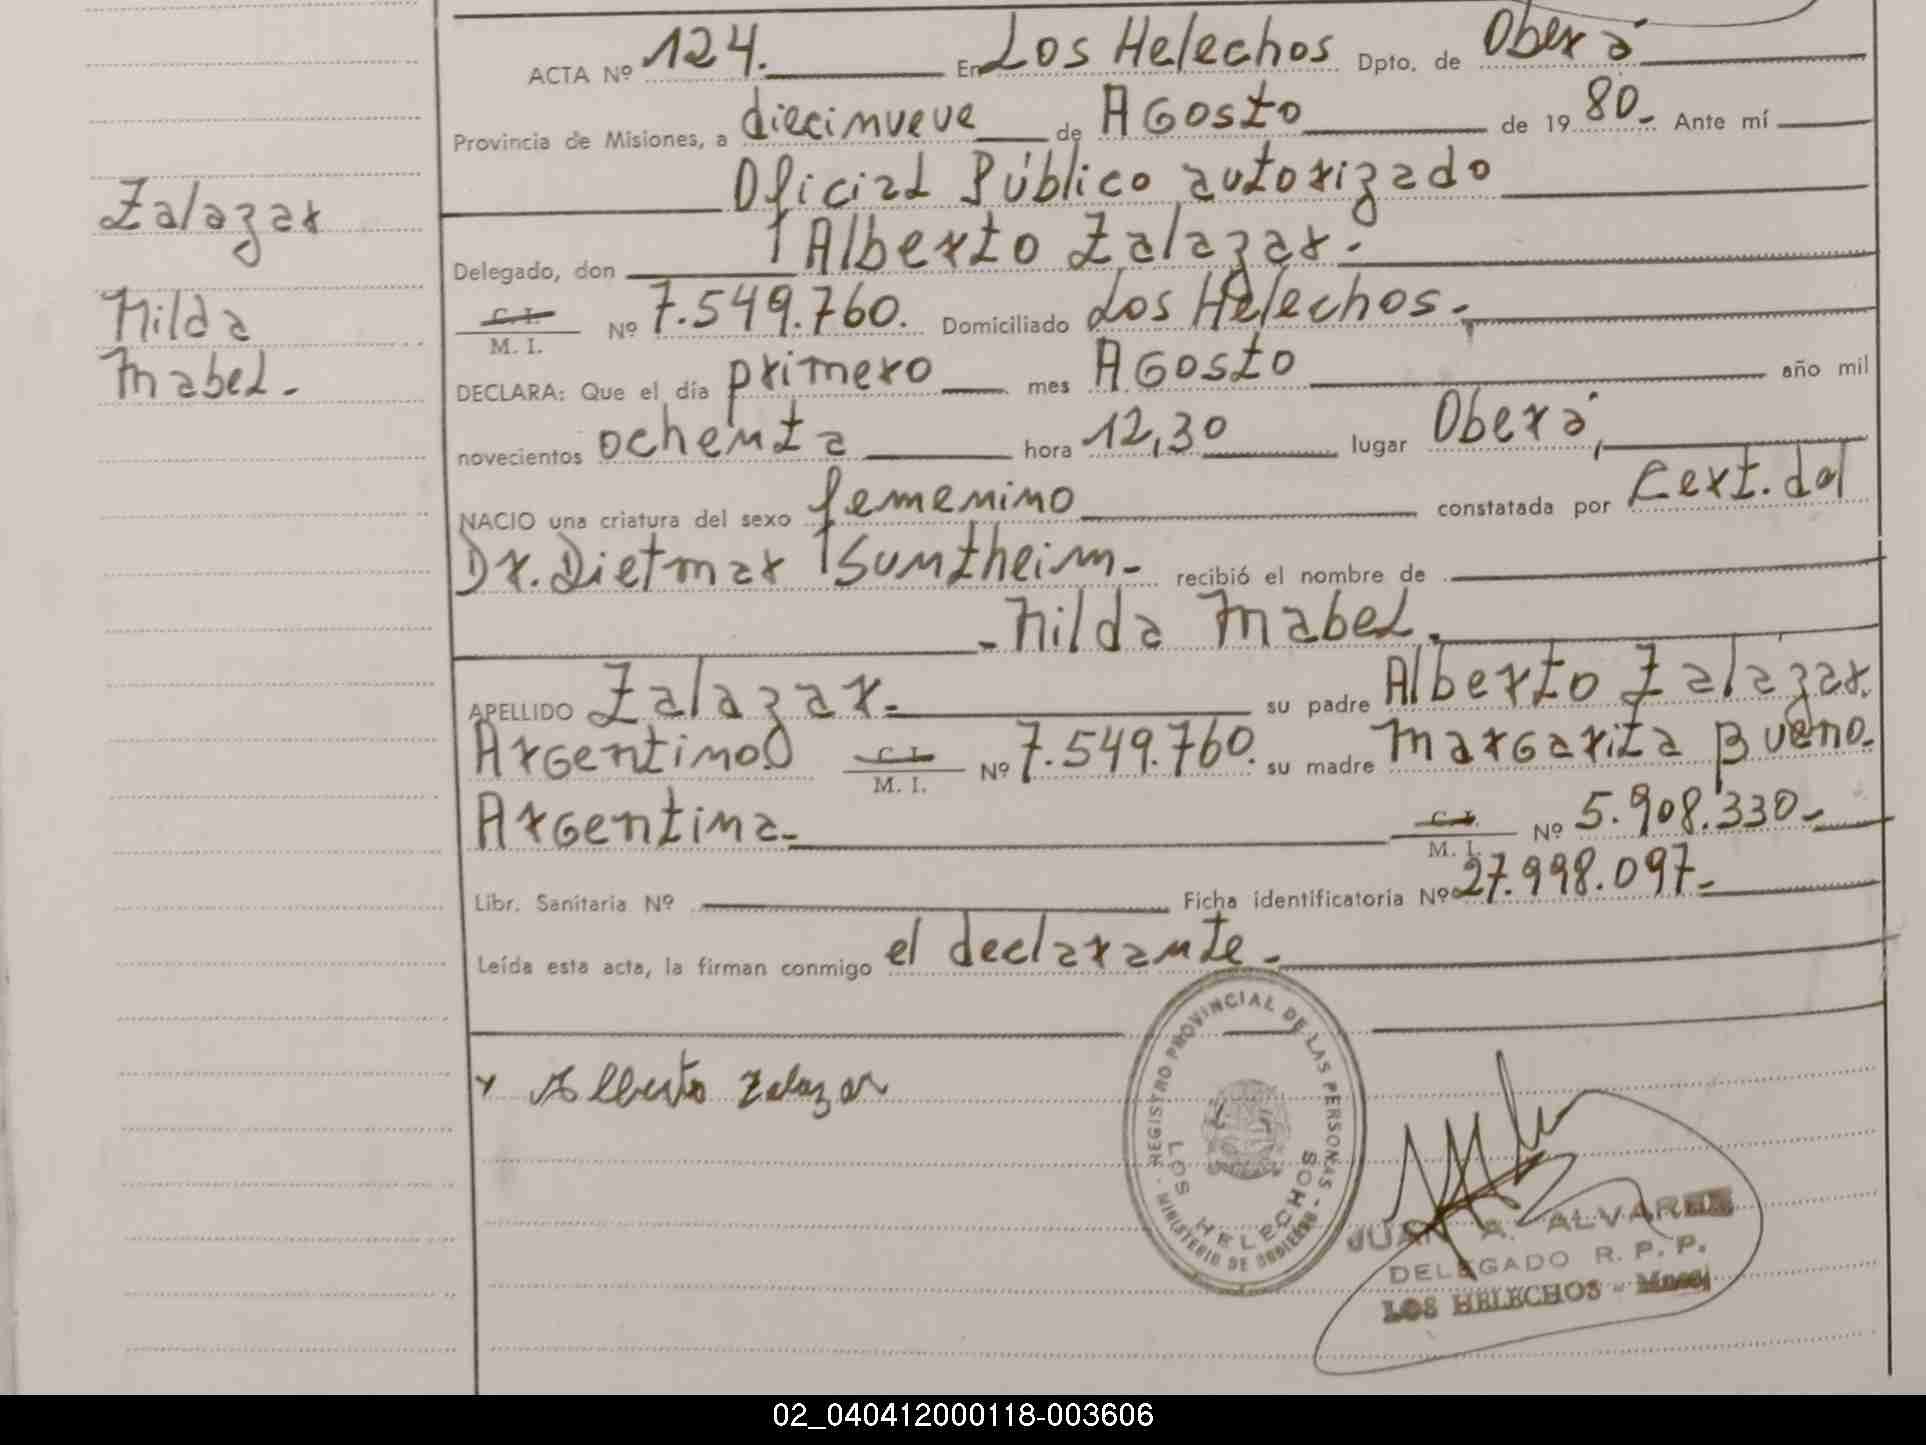 ACTA Nº 124. En Los Helechos Dpto. de Oberá
Provincia de Misiones, a diecinueve de Agosto de 1980.- Ante mí
Oficial Público autorizado
Delegado, don Alberto Zalazar.-
C. I.
M. I. Nº 7.549.760. Domiciliado Los Helechos.-
DECLARA: Que el día primero mes Agosto año mil
novecientos ochenta hora 12,30 lugar Oberá,
NACIO una criatura del sexo femenino constatada por Cert. del
Dr. Dietmar Suntheim.- recibió el nombre de
- Nilda Mabel.
APELLIDO Zalazar.- su padre Alberto Zalazar.
Argentino C. I.
M. I. Nº 7.549.760. su madre Margarita Bueno.-
Argentina.- C. I.
M. I. Nº 5.908.330.-
Libr. Sanitaria Nº Ficha identificatoria Nº 27.998.097.-
Leída esta acta, la firman conmigo el declarante.-
Zalazar
Nilda
Mabel.-
x Alberto Zalazar
REGISTRO PROVINCIAL DE LAS PERSONAS - MINISTERIO DE GOBIERNO -
LOS HELECHOS
JUAN A. ALVAREZ
DELEGADO R. P. P.
LOS HELECHOS -
02_040412000118-003606